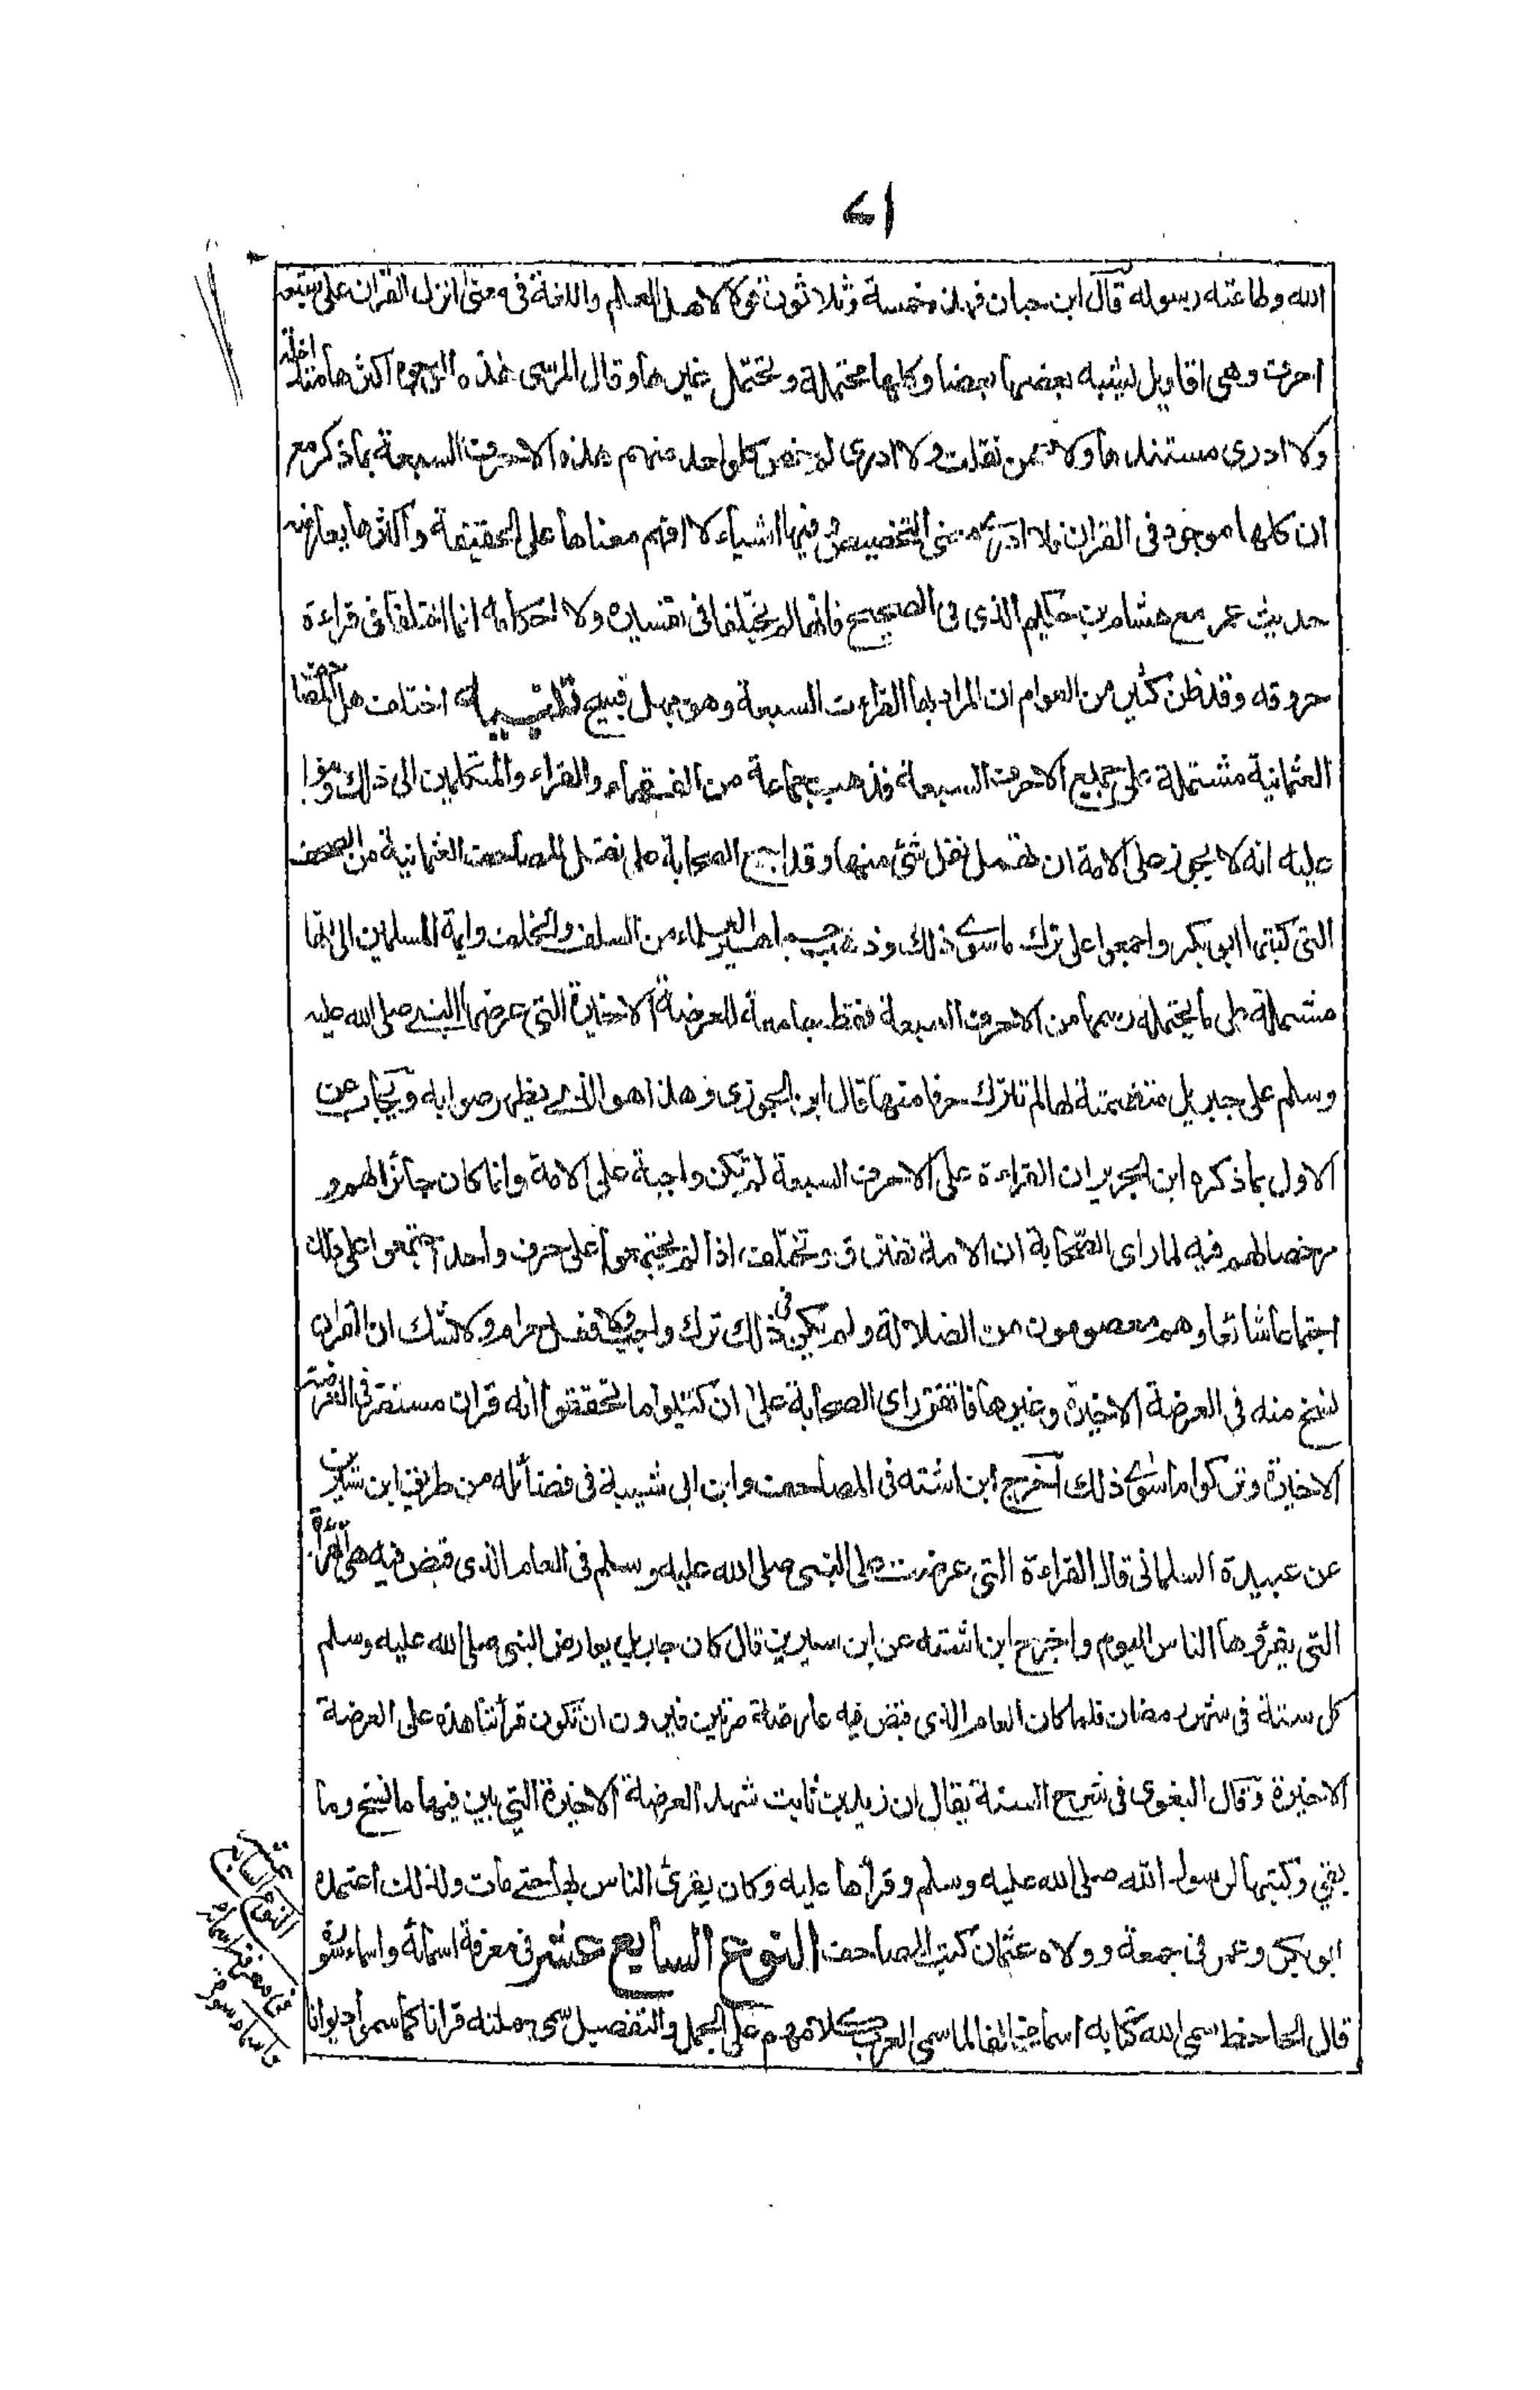 ٧١
الله وطاعته رسوله قال ابن حبان فهذه خمسة وثلاثون قولا لاهل العلم واللغة فى معنى انزل القران على سبعة
احرف وهى اقاويل يشبه بعضها بعضا وكلها محتملة وتحتمل غيرها وقال المرسى هذه الوجوه اكثرها متداخلة
ولا ادرى مستندها ولا عمن نقلت ولا ادرى لم خص كل واحد منهم هذه الاحرف السبعة بما ذكر مع
ان كلها موجود فى القران فلا ادرى معنى التخصيص و فيها اشياء لا افهم معناها على الحقيقة واكثرها يعارضه
حديث عمر مع هشام بن حكيم الذى فى الصحيح فانهما لم يختلفا فى تفسيره ولا احكامه انما اختلفا فى قراءة
حروفه وقد ظن كثير من العوام ان المراد بها القراءت السبعة وهو جهل قبيح تنبيه اختلف هل المصاحف
العثمانية مشتملة على جميع الاحرف السبعة فذهب جماعة من الفقهاء والقراء والمتكلمين الى ذلك وبنوا
عليه انه لا يجوز على الامة ان تهمل نقل شئ منها وقد اجمع الصحابة على نقل المصاحف العثمانية من الصحف
التى كتبها ابو بكر واجمعوا على ترك ما سوى ذلك وذهب جماهير العلماء من السلف والخلف وايمة المسلمين الى انها
مشتملة على ما يحتمله رسمها من الاحرف السبعة فقط جامعة للعرضة الاخيرة التى عرضها النبى صلى الله عليه
وسلم على جبريل متضمنة لها لم تترك حرفا منها قال ابن الجوزى وهذا هو الذى يظهر صوابه ويجاب عن
الاول بما ذكره ابن الجرير ان القراءة على الاحرف السبعة لم تكن واجبة على الامة وانما كان جائزا لهم و
مرخصا لهم فيه لما راى الصحابة ان الامة تفترق وتختلف اذا لم يجتمعوا على حرف واحد اجتمعوا على ذلك
اجتماعا شائعا وهم معصومون من الضلالة ولم يكن فى ذلك ترك واجب ولا فعل حرام ولا شك ان القران
نسخ منه فى العرضة الاخيرة وغيرها فاتفق راى الصحابة على ان كتبوا ما تحققوا انه قران مستقر فى العرضة
الاخيرة وتركوا ما سوى ذلك اخرج ابن اشته فى المصاحف وابن ابى شيبة فى فضائله من طريق ابن سيرين
عن عبيدة السلمانى قال القراءة التى عرضت على النبى صلى الله عليه وسلم فى العام الذى قبض فيه هى القراءة
التى يقرؤها الناس اليوم واخرج ابن اشته عن ابن سيرين قال كان جبريل يعارض النبى صلى الله عليه وسلم
كل سنة فى شهر رمضان فلما كان العام الذى قبض فيه عارضة مرتين فيرون ان تكون قرأتنا هذه على العرضة
الاخيرة وقال البغوى فى شرح السنة يقال ان زيد بن ثابت شهد العرضة الاخيرة التى بين فيها ما نسخ وما
بقى وكتبها لرسول الله صلى الله عليه وسلم وقرأها عليه وكان يقرئ الناس بها حتى مات ولذلك اعتمده
ابو بكر وعمر فى جمعه وولاه عثمان كتب المصاحف النوع السابع عشر فى معرفة اسمائه واسماء سوره
قال الجاحظ سمى الله كتابه اسما مخالفا لما سمى العرب كلامهم على الجمل والتفصيل سمى جملته قرانا كما سموا ديوانا
النوع السابع عشر
فى معرفة اسمائه
واسماء سوره